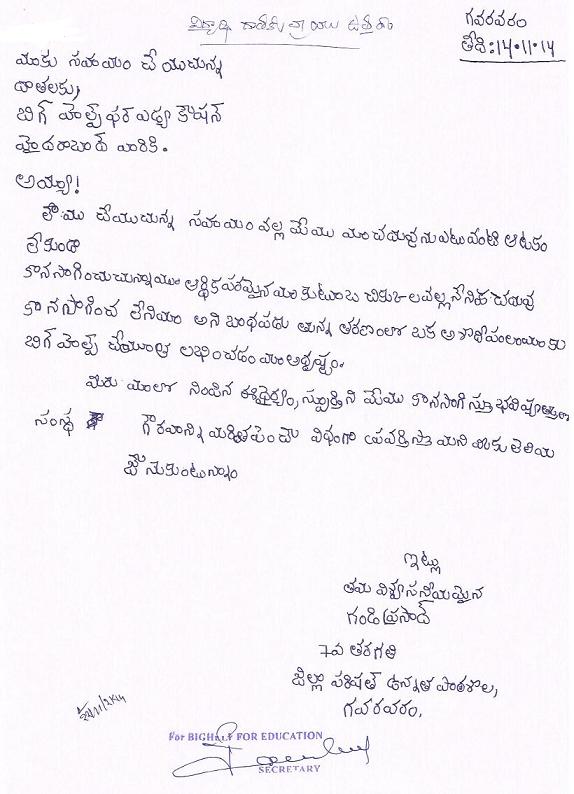 విద్యార్థి దాతకు వ్రాయు ఉత్తరం
గవరవరం
తేది:14.11.14
మాకు సహాయం చేయుచున్న
దాతలకు,
బిగ్ హెల్ప్ ఫర్ ఎడ్యుకేషన్
హైదరాబాద్ వారికి.
అయ్యా!
మీము చేయుచున్న సహాయం వల్ల మేము మా చదువును ఎటువంటి ఆటకం
లేకుండా
కొనసాగించుచున్నాము ఆర్థికపరమైన మా కుటుంబ చిక్కుల వల్ల నేనిక చదువు
కొనసాగించ లేనేమో అని బాధపడుతున్న తరుణంలో ఒక ఆశాదీపంలా మాకు
బిగ్ హెల్ప్ చేయూత లభించడం మా అదృష్టం.
మీరు మాలో నింపిన ఈ ధైర్యం, స్ఫూర్తిని మేము కొనసాగిస్తూ భవిష్యత్తులో
సంస్థ గౌరవాన్ని మరింత పెంచే విధంగా ప్రవర్తిస్తామని మీకు తెలియ
జేసుకుంటున్నాం
ఇట్లు
తమ విశ్వసనీయమైన
గండి ప్రసాద్
7వ తరగతి
జిల్లా పరిషత్ ఉన్నత పాఠశాల,
గవరవరం.
For BIGHELP FOR EDUCATION
SECRETARY